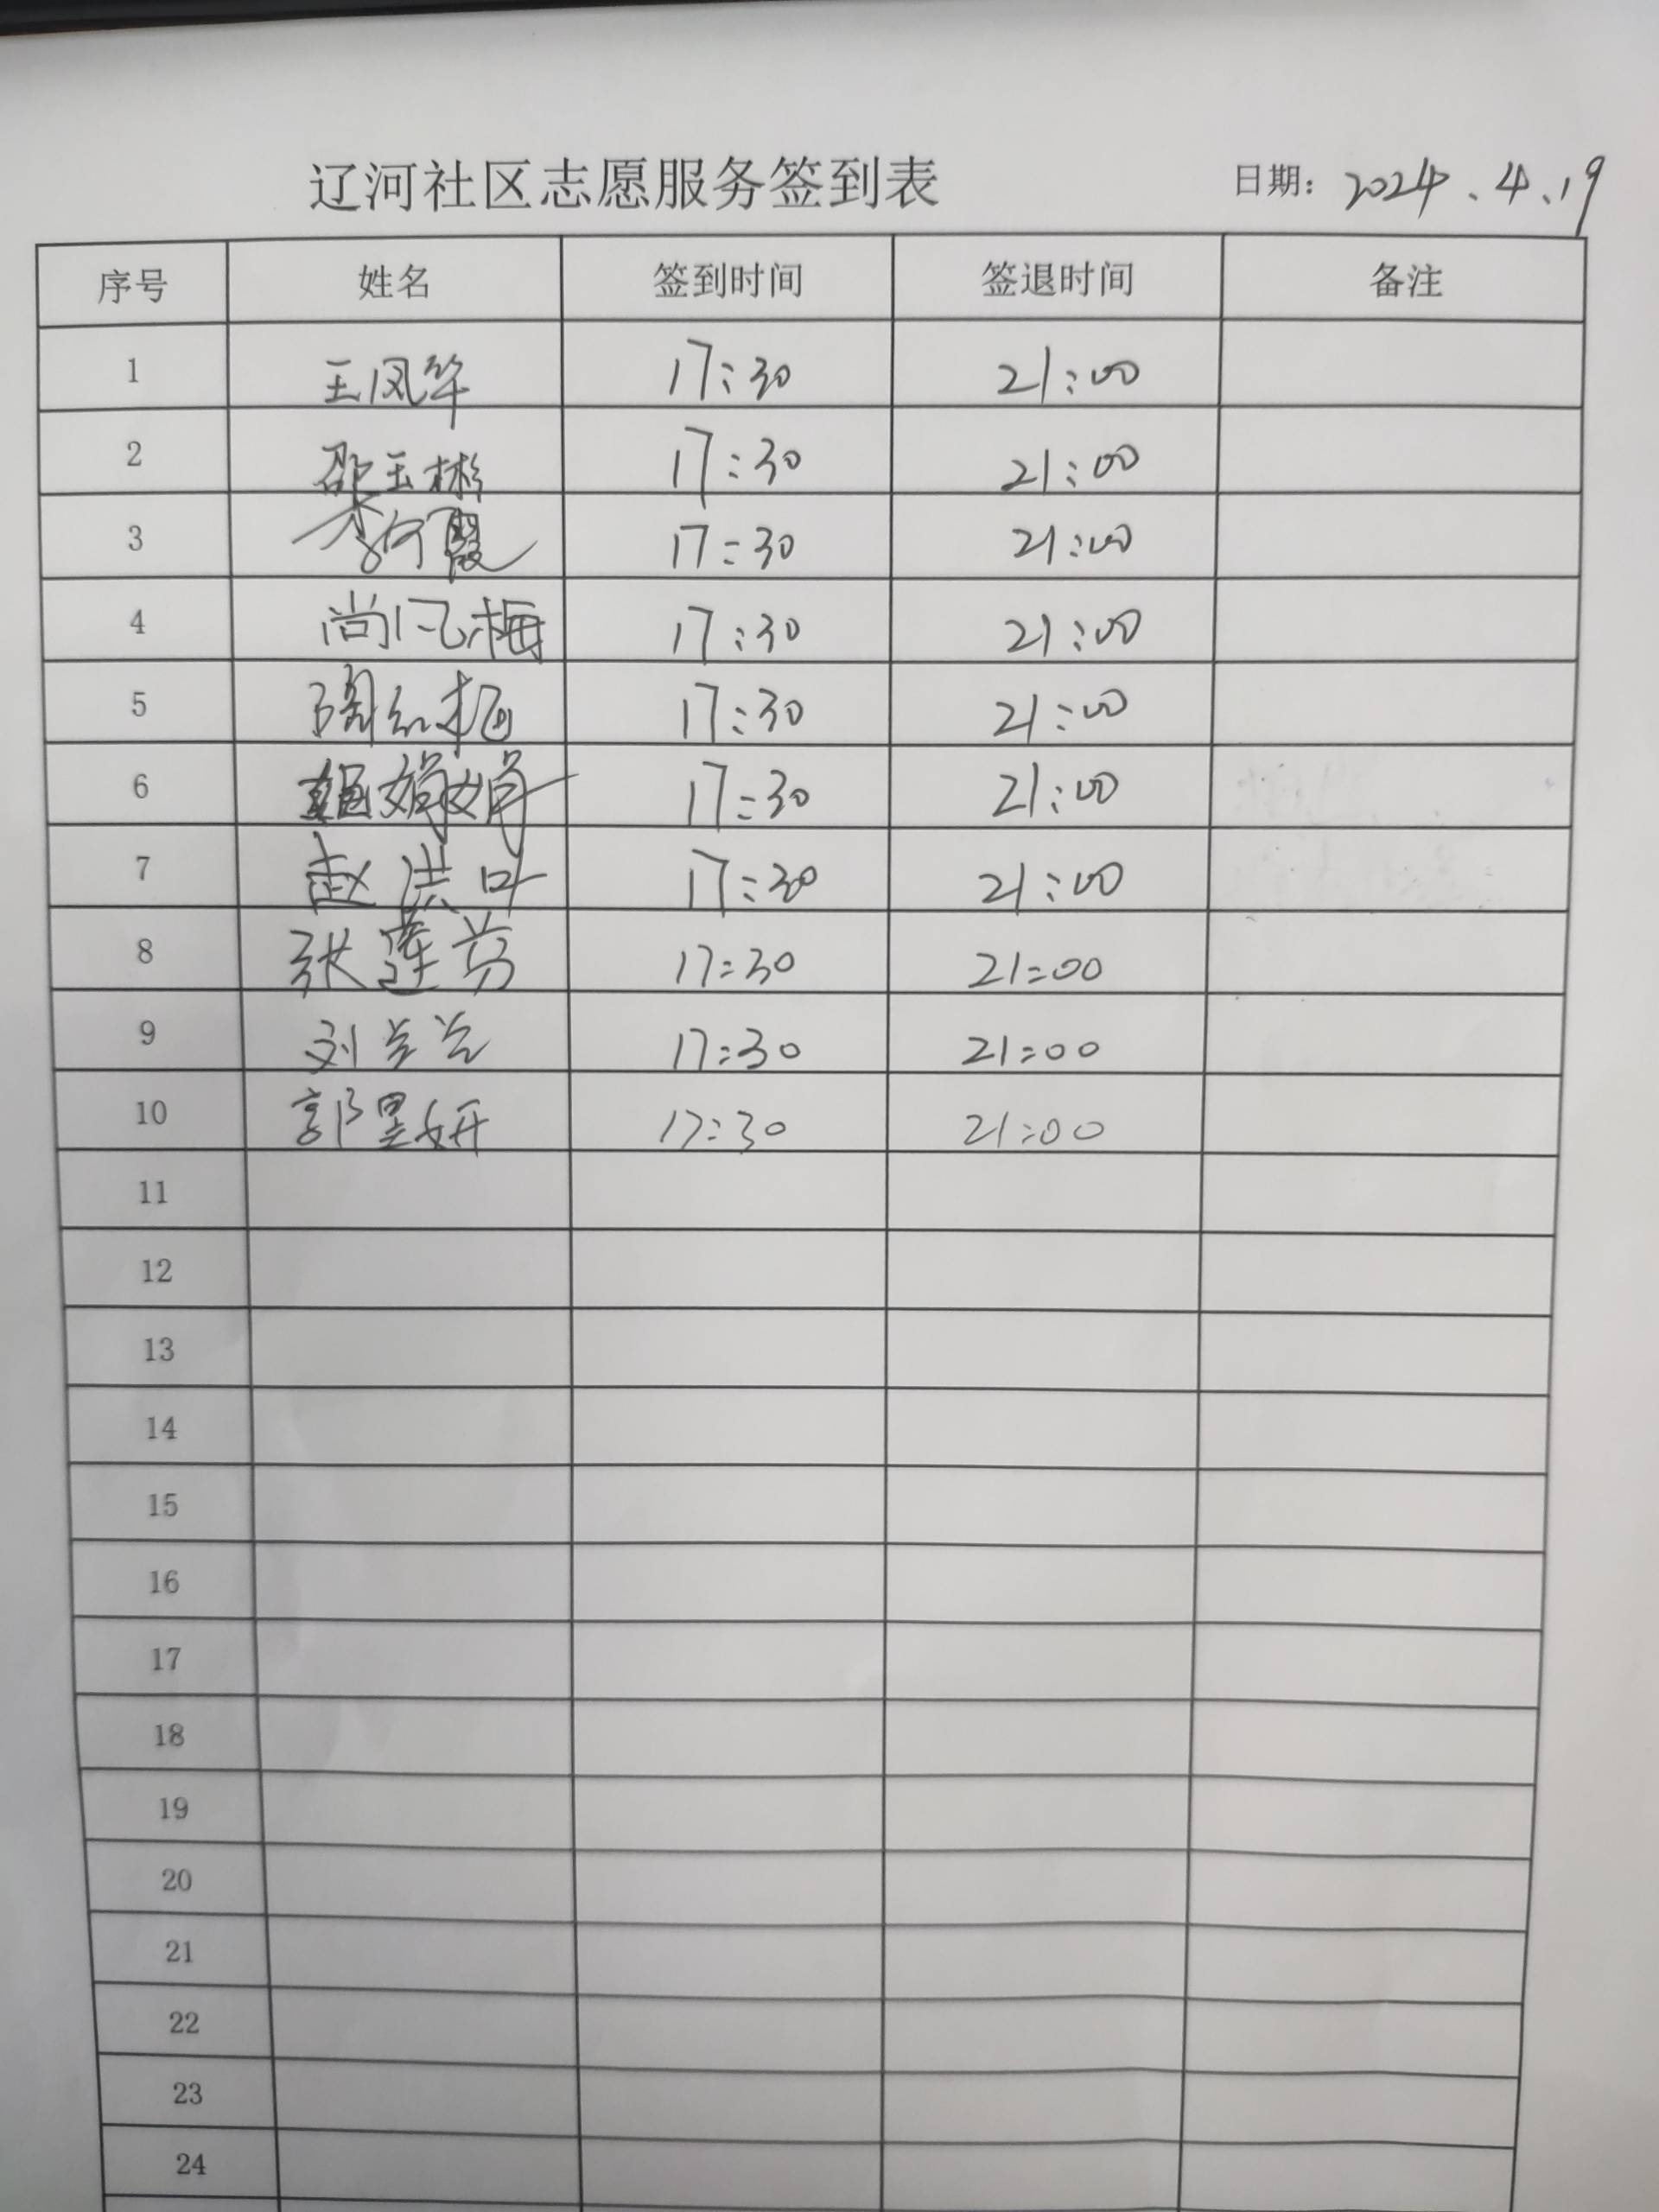 辽河社区志愿服务签到表 日期：2024.4.19
序号 姓名 签到时间 签退时间 备注
1 王凤华 17:30 21:00
2 邵玉彬 17:30 21:00
3 李河霞 17:30 21:00
4 尚风梅 17:30 21:00
5 17:30 21:00
6 娟娟 17:30 21:00
7 赵洪叶 17:30 21:00
8 张莲芬 17:30 21:00
9 刘兰兰 17:30 21:00
10 郭昱妍 17:30 21:00
11
12
13
14
15
16
17
18
19
20
21
22
23
24